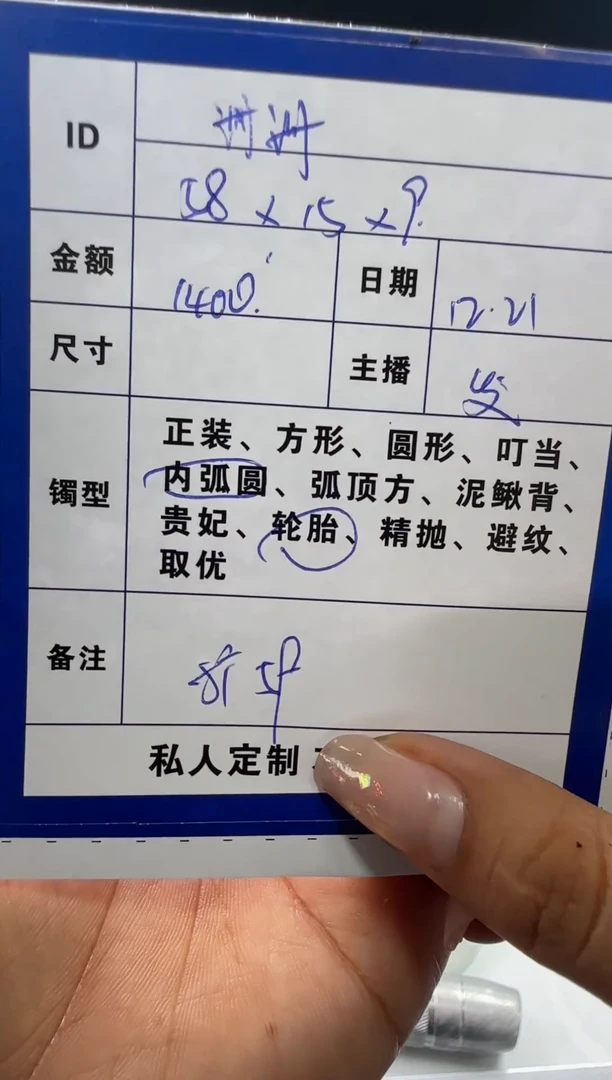 ID
洲洲
58 x 15 x ?
金额 1400. 日期 12.21
尺寸 主播
镯型
正装、方形、圆形、叮当、
内弧圆、弧顶方、泥鳅背、
贵妃、轮胎、精抛、避纹、
取优
备注
私人定制